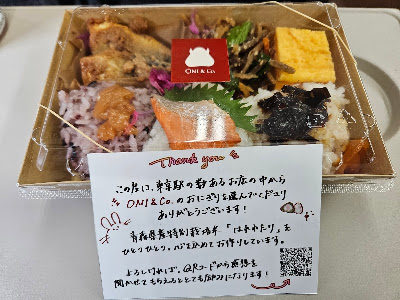 ONI & Co.
Thank you
この度は、東京駅の数あるお店の中から
ONI&Co.のおにぎりを選んでくださり
ありがとうございます!
青森県産特別栽培米「はれわたり」を
ひとつひとつ、心をこめてお作りしています。
よろしければ、QRコードから感想を
聞かせてもらえるととても励みになります!